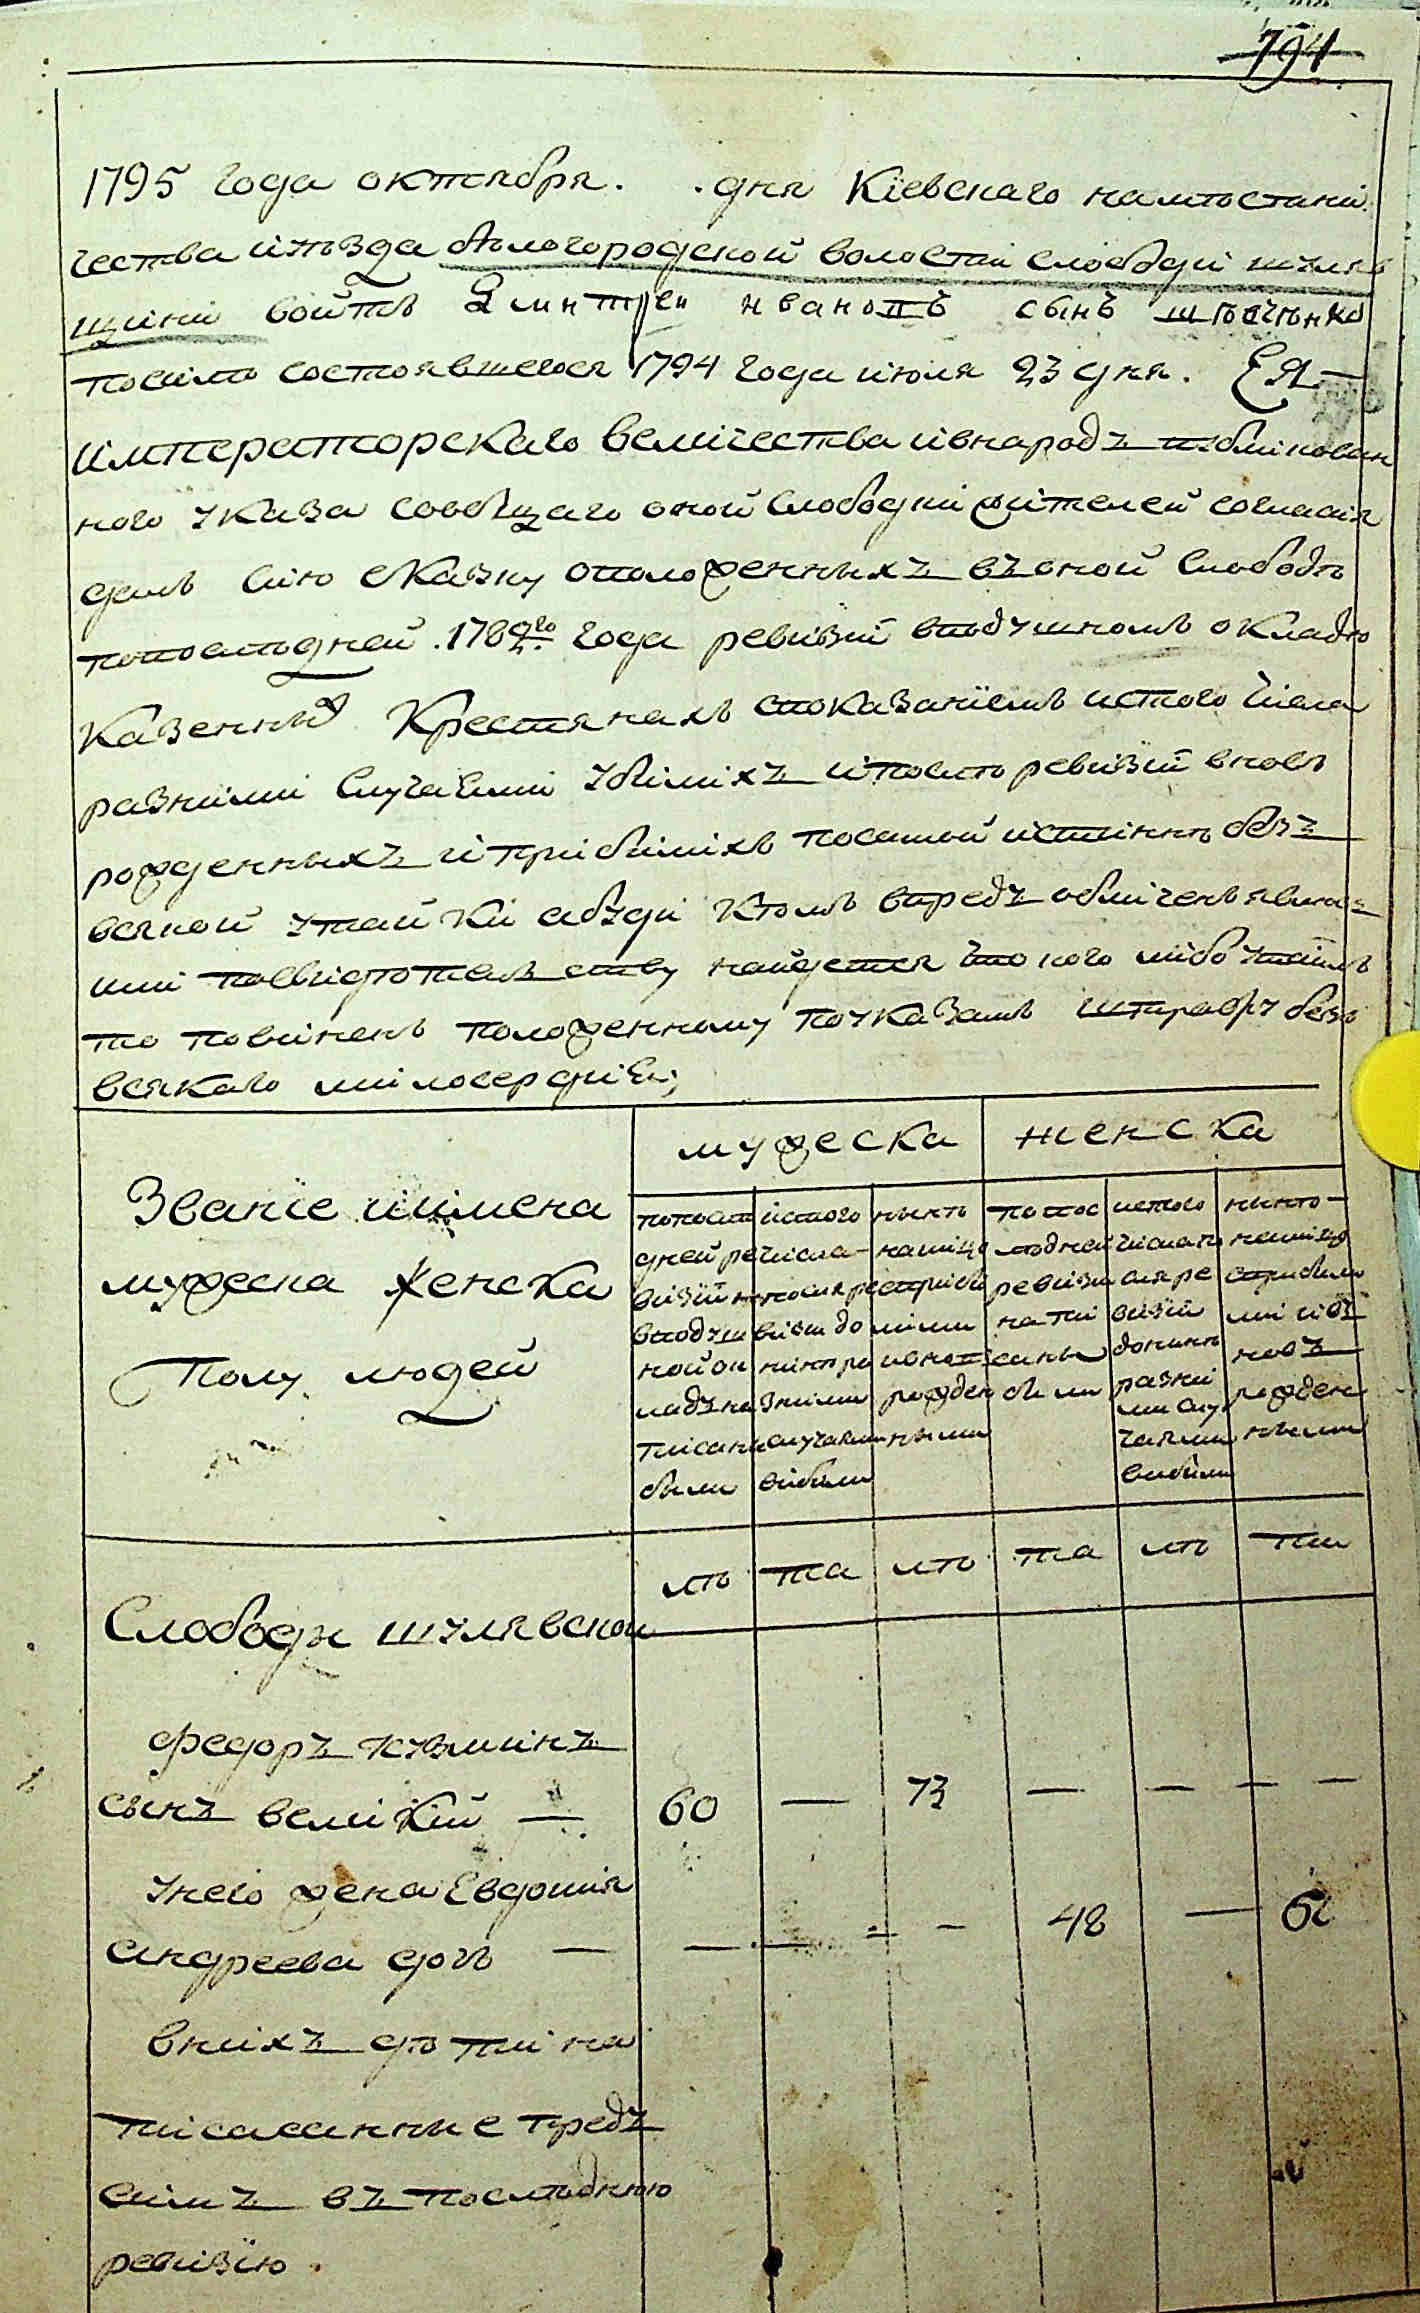 794
1795 года октября. .дня Кіевскаго намѣстни
чества иуѣзда бѣлогородской волости слободи шуляв
щини войтъ Дмитреи ивановъ сынъ
посилѣ состоявшегося 1794 года июля 23 дня. Ея
імператорскаго величества ивнародъ публікован
ного указа сообщаго оной слободки жителей согласія
далъ сию сказку оположенныхъ въоной слободѣ
попослѣдней 1782го года ревизіи вподушномъ окладѣ
казенныхъ крестянахъ споказаниемъ истого числа
разними случаями убилихъ ипослѣ ревизіи вновь
рожденныхъ иприбилихъ посамой истиннѣ безъ
всякой утайки абуди ктомъ впредь обличенъ явна
или посвидѣтелству найдется что кого либо утаилъ
то повиненъ положенному поуказамъ штрафу безъ
всякаго милосердія;
мужеска женска
Званіе иимена
мужеска женска
полу людей
попослѣ
дней ре
визіи
вподуш
ной ок
ладъ на
писани
были
истого
числа
послѣ ре
визіи до
нинѣ ра
зними
случаями
вибили
нынѣ
налицо
сприбы
лими
ивновь
рожден
ными
попос
лѣдней
ревизіи
напи
саны
были
истого
числа по
слѣ ре
визіи
донинѣ
разни
ми слу
чаями
вибили
нинѣ
налицо
сприбили
ми ивъ
новъ
рожден
ными
лѣ та лѣ та лѣ та
Слободы шулявской
федоръ кузминъ
сынъ великій — 60 — 73 — — — —
унего жена Евдокия
андреева дочь — — — — — 48 —
внихъ дѣти на
писанные предъ
симъ въ последнюю
ревизію.